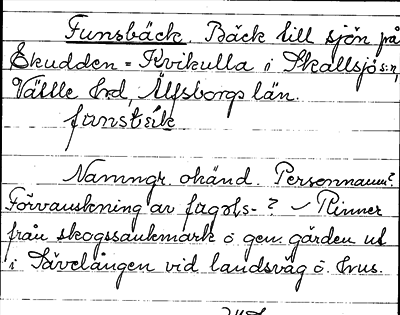 Funsbäck. Bäck till sjön på
Ekudden = Kvikulla i Skallsjö s:n,
Vättle hrd, Älfsborgs län.
funstsik
Namngr. okänd. Personnamn?
Förvanskning av fagots- ? – Rinner
från skogssankmark ö gen. gården ut
i Sävelången vid landsväg ö. hus.